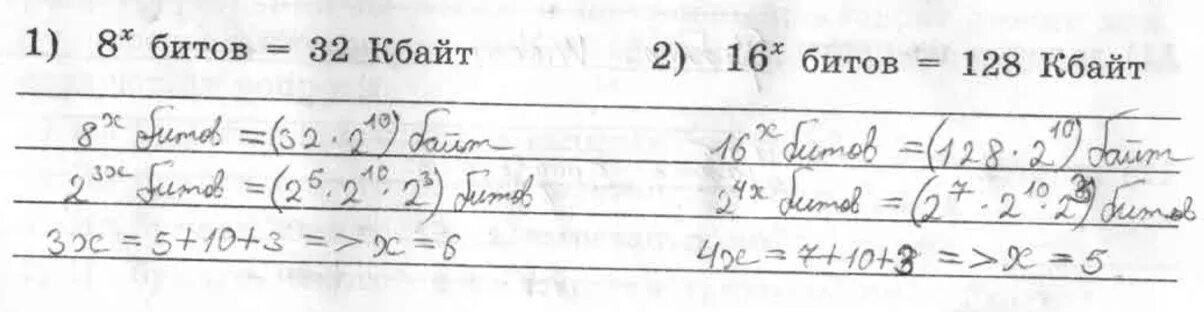 1) 8ˣ битов = 32 Кбайт
8ˣ битов = (32 · 2¹⁰) байт
2³ˣ битов = (2⁵ · 2¹⁰ · 2³) битов
3x = 5+10+3 => x = 6
2) 16ˣ битов = 128 Кбайт
16ˣ битов = (128 · 2¹⁰) байт
2⁴ˣ битов = (2⁷ · 2¹⁰ · 2³) битов
4x = 7+10+3 => x = 5